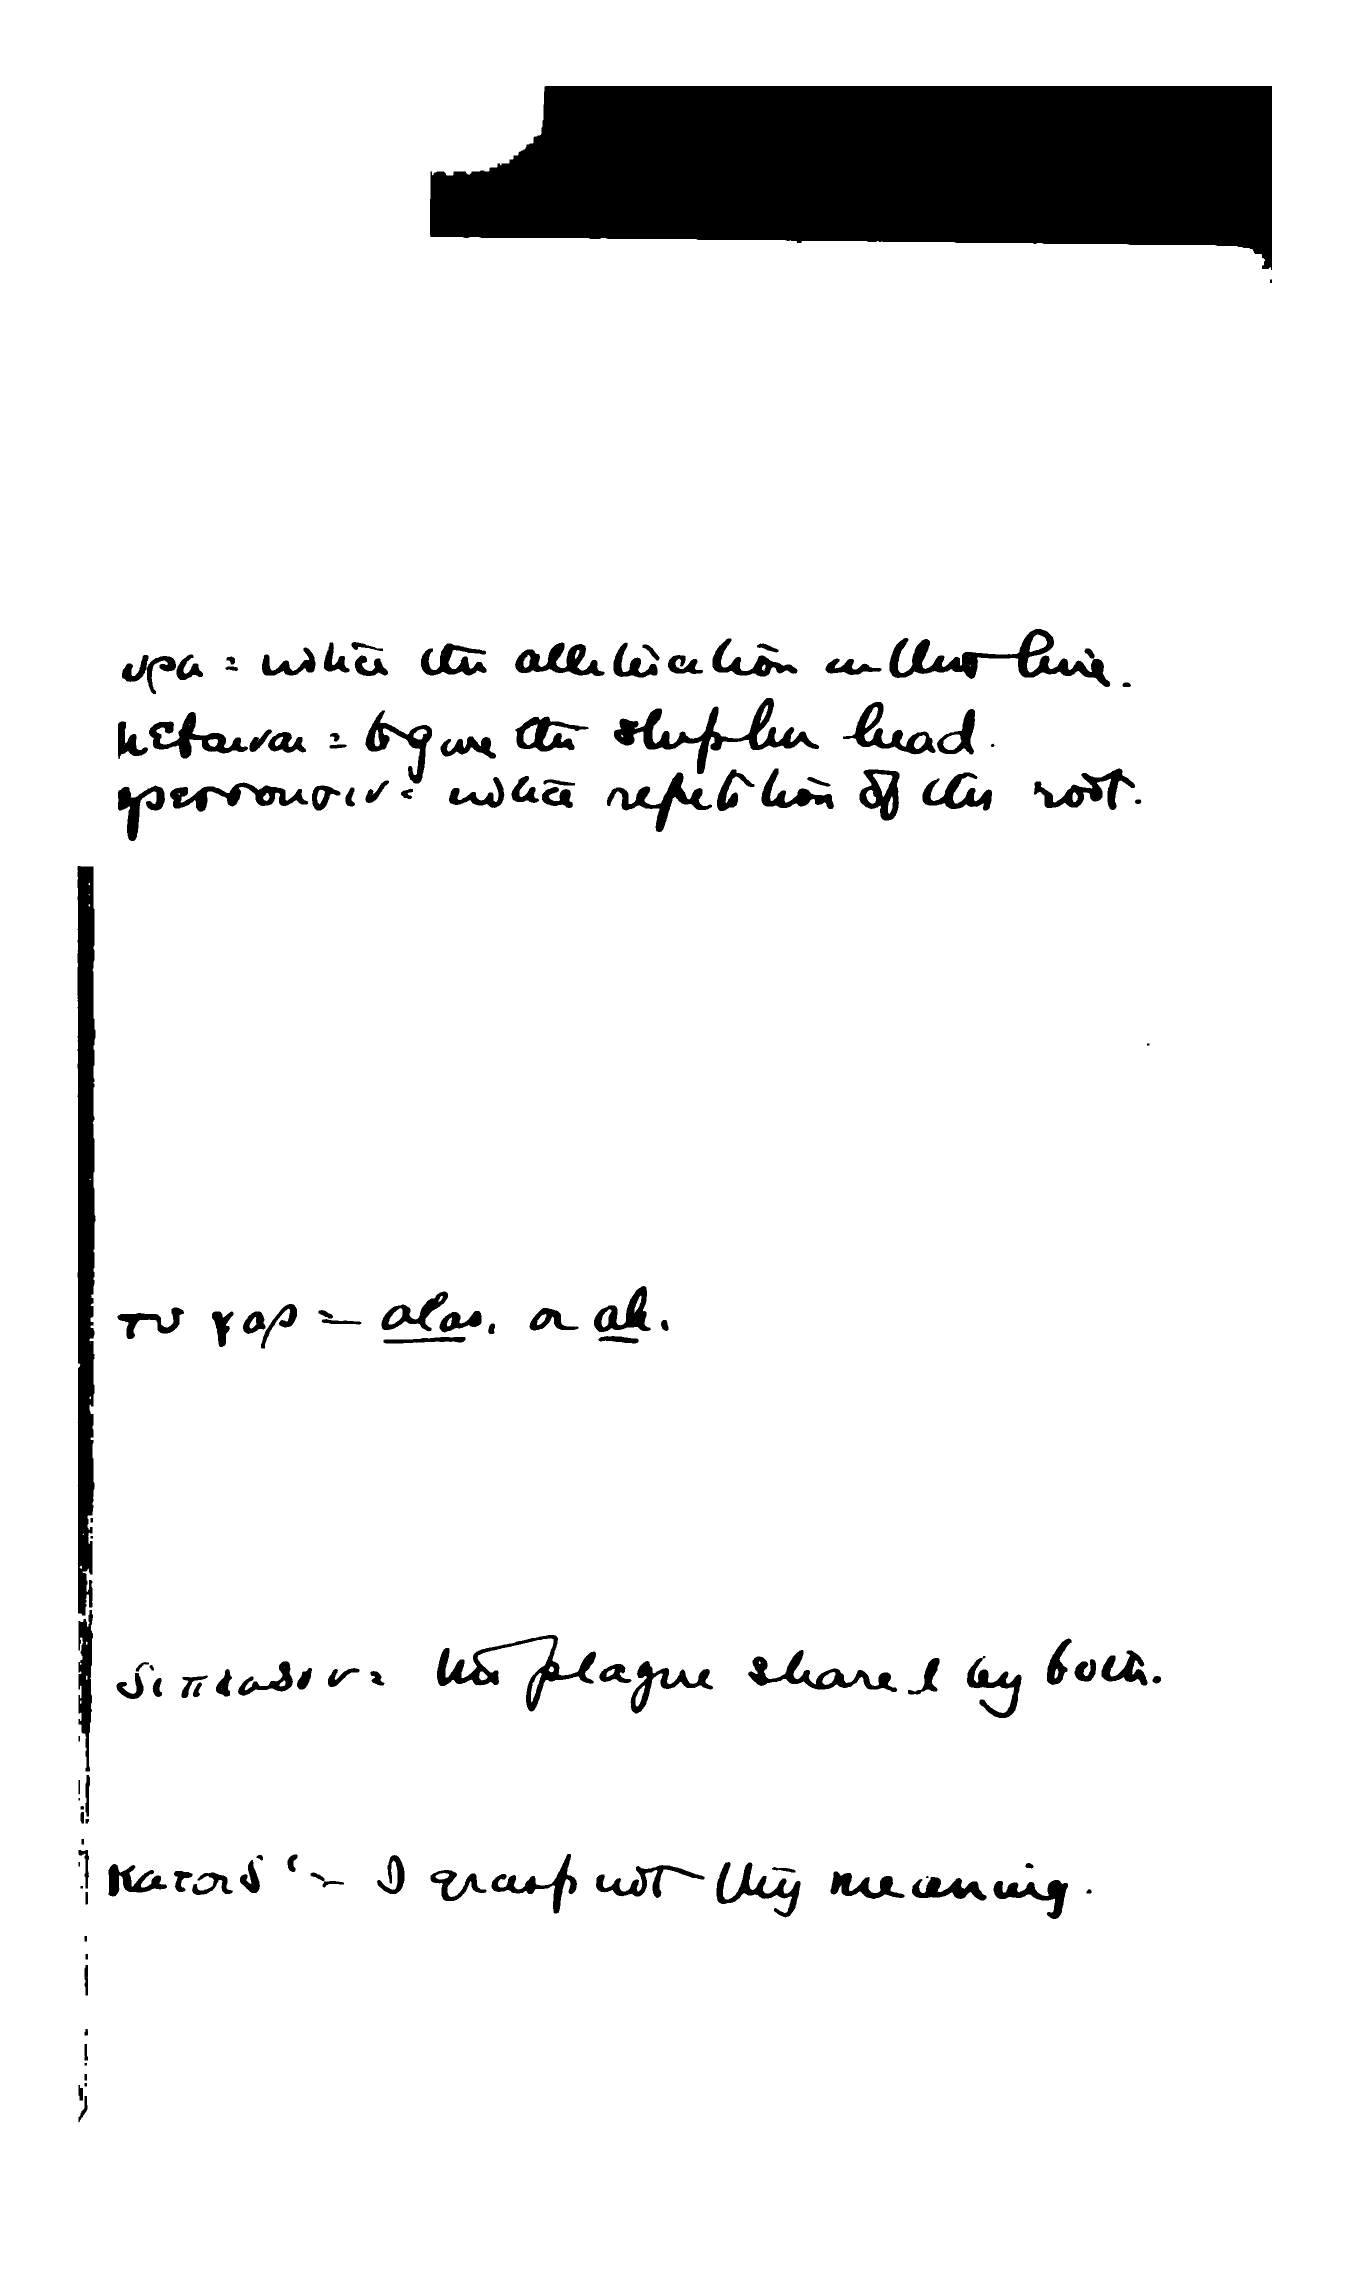 υρα = notice the alliteration in this line.
κεβαιναι = to give the shepher head.
φρεσσουσιν = notice repetition of this root.
τυ γαρ = alas, or ah.
διπλασιν = the plague shared by both.
κατοιδ‘ = I grasp not thy meaning.